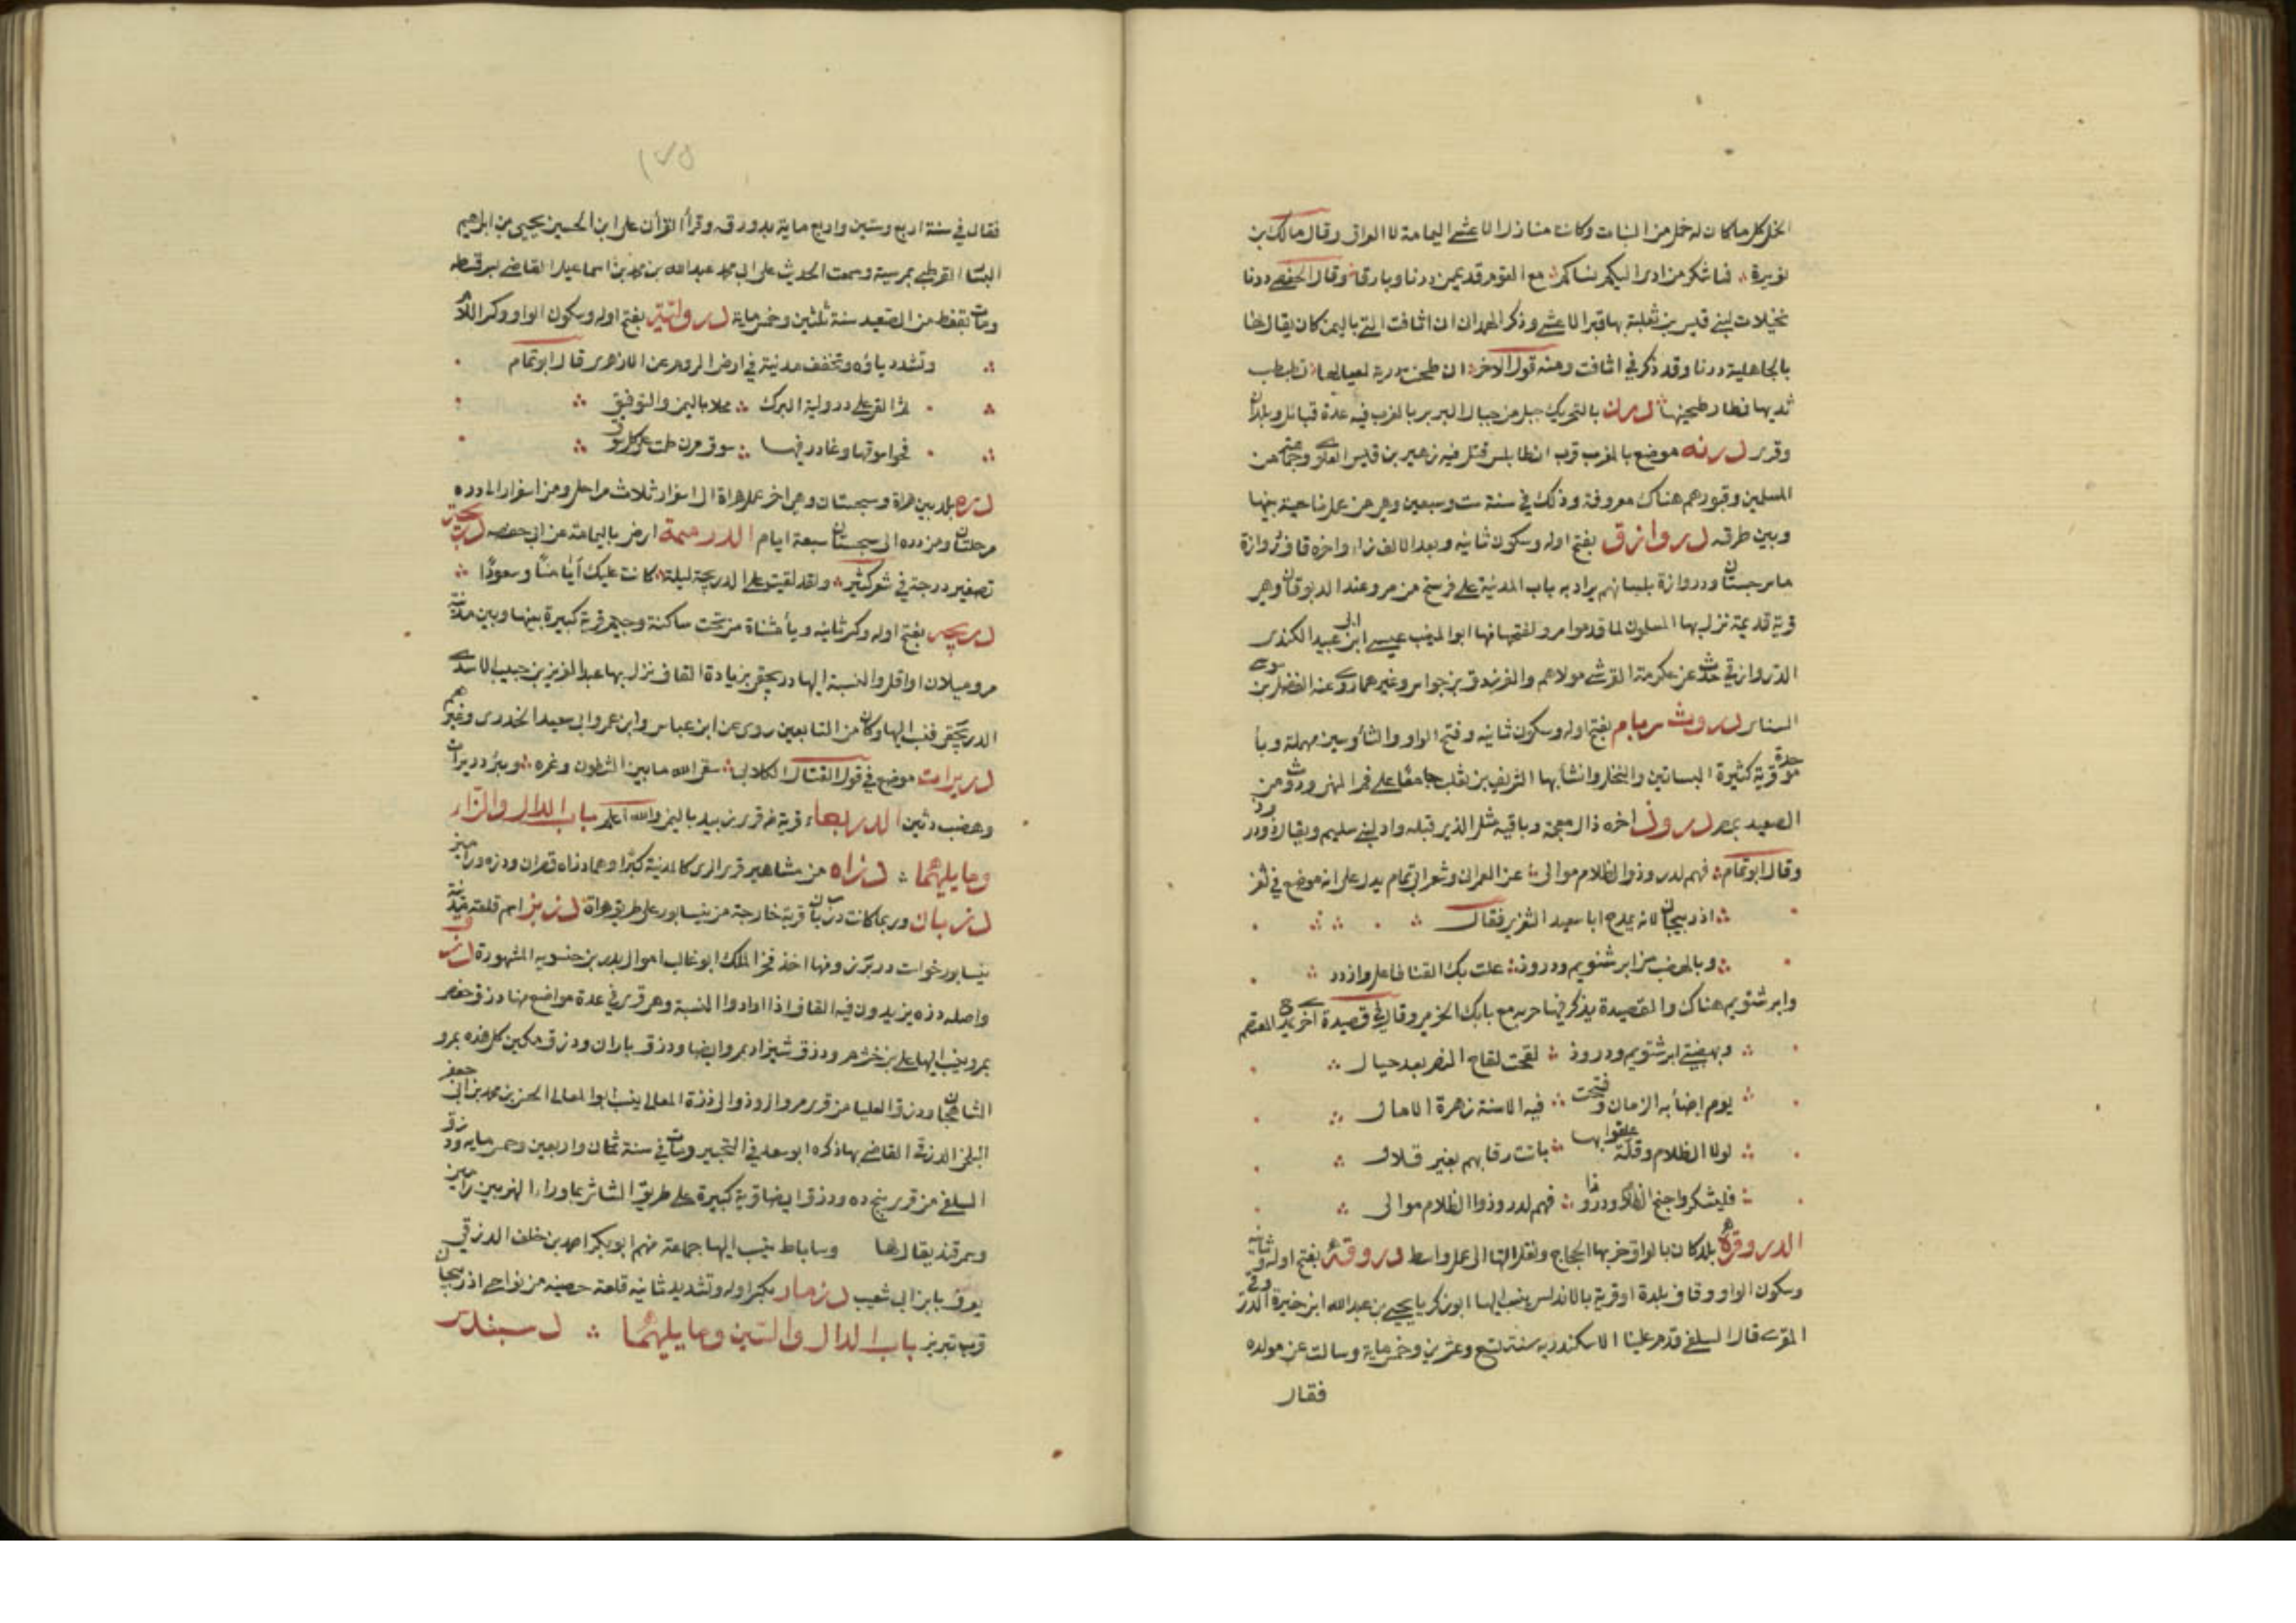 النخل كل ما كان له خمل من النبات وكانت منازل الاعشى اليمامة لا العراق وقال مالك بن
نويرة فما شكر من ادى اليكم نساكم مع القوم قد يممن درنا وبارقا وقال الحفصي درنا
نخيلات لبني قيس بن ثعلبة بها قبر الاعشى وذكر الهمدانى ان اثافت التى باليمن كان يقال لها
بالجاهلية درنا وقد ذكر في اثافت ومنه قول الاخر ان طحنت درنية لعيالها تطبطب
ثديها فطار طحينها درن بالتحريك جبل من جبال البربر بالمغرب فيه عدة قبائل وبلدان
وقرى درنه موضع بالمغرب قرب انطابلس قتل فيه زهير بن قيس البلوى وجماعة من
المسلمين وقبورهم هناك معروفة وذلك في سنة ست وسبعين وهي من عمل ناحية بينها
وبين طرقه دروازق بفتح اوله وسكون ثانيه وبعد الالف زاء واخره قاف دروازة
ماسرجستان ودروازة بلسانهم يراد به باب المدينة على فرسخ من مرو عند الديوقان وهي
قرية قديمة نزل بها المسلمون لما قدموا مرو لفتحها منها ابو المنيب عيسى ابن عبيد الكندى
الدروازقي حدث عن عكرمة القرشى مولاهم والفرزدق بن جواس وغيرهما روى عنه الفضل بن موسى
السناني دروت سربام بفتح اوله وسكون ثانيه وفتح الواو والتاء وسين مهملة وباء
موحدة قرية كثيرة البساتين والنخل وانشا بها الشريف بن ثعلب جامعا على فم المنهى ودروت من
الصعيد بمصر دروذ اخره ذال معجمة وباقيه مثل الذي قبله واد لبني سليم ويقال ذو درود
وقال ابو تمام فهم لدروذ والظلام موالى عن العمران وشعر ابي تمام يدل على انه موضع في ثغر
اذربيجان لانه يمدح ابا سعيد الثغري فقال
وبالهضب من ابرشتويم ودروذ علت بك القنا فاعل وازدد
وابرشتويم هناك والقصيدة يذكر فيها حربه مع بابك الخرمي وقال في قصيدة اخرى يمدح المعتصم
وبهضبتى ابرشتويم ودروذ لقحت لقاح النصر بعد حيال
يوم اضاء به الزمان وفتحت فيه الاسنة زهرة الامال
لولا الظلام وقلة علقوا بها باتت رقابهم بغير قلال
فليشكروا جنح الظلام ودروذا فهم لدروذ والظلام موالى
الدروقرة بلد كان بالعراق خربها الحجاج ونقل التها الى عمل واسط دروقة بفتح اوله وثانيه
وسكون الواو وقاف بلدة او قرية بالاندلس ينسب اليها ابو زكريا يحيى بن عبد الله ابن خيرة الدروقي
المقرى قال السلفي قدم علينا الاسكندرية سنة تسع وعشرين وخمسماية وسالت عن مولده
فقال
١٧٥
فقال في سنة اربع وستين واربع ماية بدورقه وقرأ القرأن على ابن الحسين يحيى بن ابراهيم
البسا القرطبي بمرسية وسمعت الحديث على ابي محمد عبد الله بن محمد بن اسماعيل القاضي بسرقسطه
ومات بقفط من الصعيد سنة ثلثين وخمس ماية درولية بفتح اوله وسكون الواو وكسر اللام
وتشدد ياؤه وتخفف مدينة في ارض الروم عن الازهرى قال ابو تمام
ثم القى على درولية البرك محلا باليمن والتوفيق
فحوا سوقها وغادر فيها سوق مرن طمت على كل سوق
دره بلد بين هراة وسجستان وهي اخر عمل هراة الى اسفزار ثلاث مراحل ومن اسفزار الى دره
مرحلتان ومن دره الى سجستان سبعة ايام الدرهمة ارض باليمامة من ابي حفصه دريجة
تصغير درجة في شعر كثير ولقد لقيت على الدريجة ليلة كانت عليك أيامنا وسعودا
دريجه بفتح اوله وكسر ثانيه وياء مثناة من تحت ساكنة وجيم قرية كبيرة بينها وبين مدينة
مرو ميلان او اقل والنسبة اليها دريجقى بزيادة القاف نزل بها عبد العزيز بن حبيب الاسدى
الدريجقي فنسب اليها وكان من التابعين روى عن ابن عباس وابن عمر وابي سعيد الخدرى وغيرهم
دريرات موضع في قول القتال الكلابي سقى الله ما بين الشطون وغمره وبئر دريرات
وهضب دثين الدريعاء قرية من قرى زبيد باليمن والله اعلم باب الدال والزاء
وما يليهما دزاه من مشاهير قرى الرى كالمدينة كبرا وهما دزاه قصران ودزاه ورامين
دزبان وربما كانت دزبان قرية خارجة من نيسابور على طريق هراة دزبز اسم قلعة مدينة
نيسابور خواست دزبز ومنها اخذ فخر الملك ابو غالب اموال بدر بن حسنويه المشهورة دزق
واصله دزه يزيدون فيه القاف اذا ارادوا النسبة وهي قرى في عدة مواضع منها دزق حفص
بمرو ينسب اليها على بن خشرم ودزق شيرزاد بمرو ايضا ودزق باران ودزق مكين كل هذه بمرو
الشاهجان ودزق العليا من قرى مرو الروذ ينسب ابو المعالى الحسن بن محمد بن ابى جعفر
البلخي الدزقى القاضي بها ذكره ابو سعد في التحبير ومات في سنة ثمان واربعين وخمسمايه ودزق
السفلى من قرى بنج ده ودزق ايضا قرية كبيرة على طريق الشاش بما وراء النهر بين رامين
وسمرقند يقال لها وساباط ينسب اليها جماعة منهم ابو بكر احمد بن خلف الدزقى
يعرف بابن ابى شعيب دزمار بكسر اوله وتشديد ثانيه قلعة حصينه من نواحى اذربيجان
قرب تبريز باب الدال والسين وما يليهما دسبندس